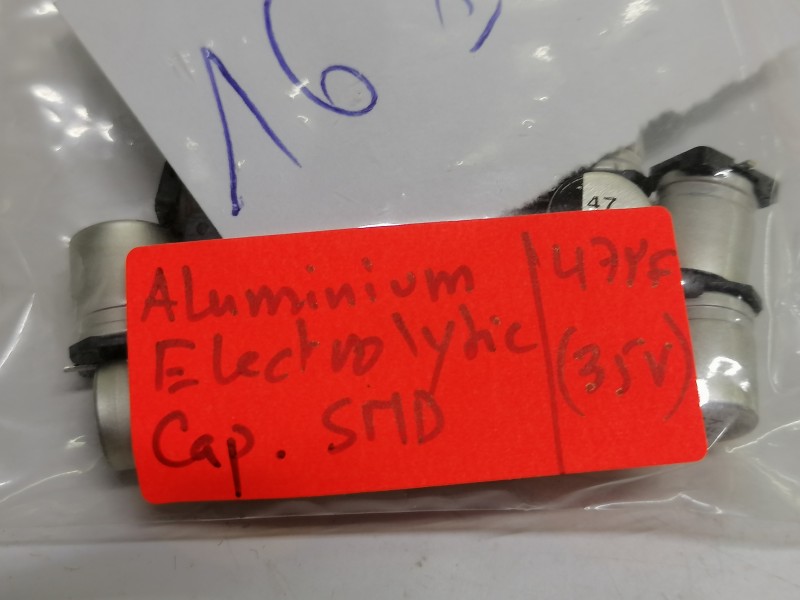 16
47
Aluminium
Electrolytic
Cap. SMD
47µF
(35V)